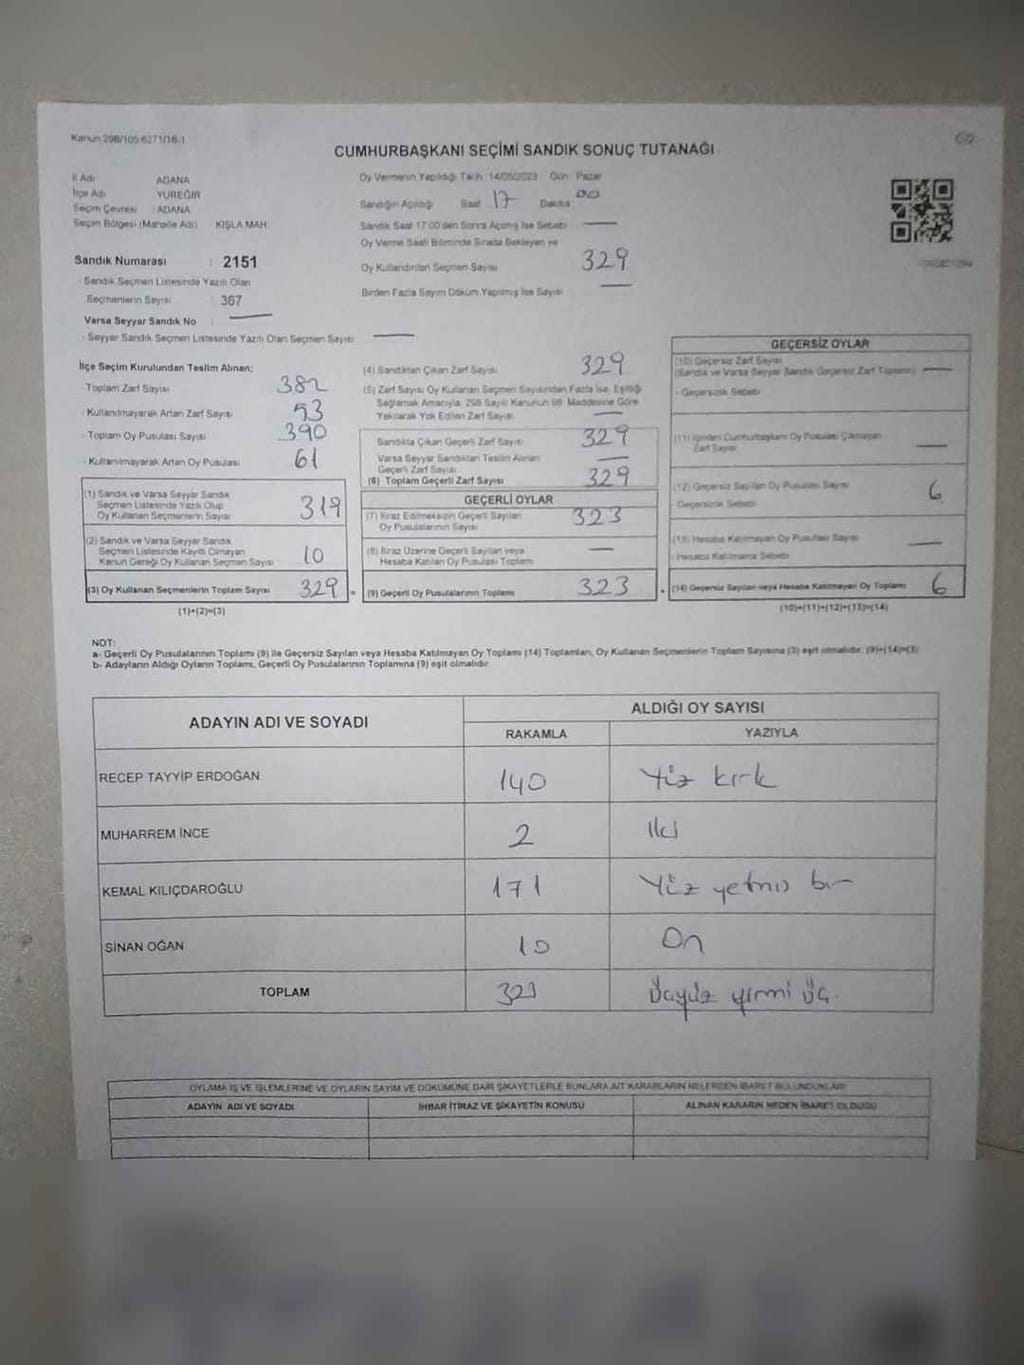 Kanun 298/105 6271/18-1
CUMHURBAŞKANI SEÇİMİ SANDIK SONUÇ TUTANAĞI
İl Adı ADANA
İlçe Adı YÜREĞİR
Seçim Çevresi : ADANA
Seçim Bölgesi (Mahalle Adı) KIŞLA MAH.
Oy Vermenin Yapıldığı Tarih: 14/05/2023 Gün: Pazar
Sandığın Açıldığı Saat 17 Dakika 00
Sandık Saat 17:00'den Sonra Açılmış İse Sebebi —
Oy Verme Saati Bitiminde Sırada Bekleyen ve
Oy Kullandırılan Seçmen Sayısı 329
Birden Fazla Sayım Döküm Yapılmış İse Sayısı —
Sandık Numarası : 2151
- Sandık Seçmen Listesinde Yazılı Olan
Seçmenlerin Sayısı : 367
Varsa Seyyar Sandık No : —
- Seyyar Sandık Seçmen Listesinde Yazılı Olan Seçmen Sayısı —
İlçe Seçim Kurulundan Teslim Alınan;
- Toplam Zarf Sayısı 382
- Kullanılmayarak Artan Zarf Sayısı 53
- Toplam Oy Pusulası Sayısı 390
- Kullanılmayarak Artan Oy Pusulası 61
(1) Sandık ve Varsa Seyyar Sandık
Seçmen Listesinde Yazılı Olup
Oy Kullanan Seçmenlerin Sayısı 319
(2) Sandık ve Varsa Seyyar Sandık
Seçmen Listesinde Kayıtlı Olmayan
Kanun Gereği Oy Kullanan Seçmen Sayısı 10
(3) Oy Kullanan Seçmenlerin Toplam Sayısı 329
(1)+(2)=(3)
(4) Sandıktan Çıkan Zarf Sayısı 329
(5) Zarf Sayısı Oy Kullanan Seçmen Sayısından Fazla İse, Eşitliği
Sağlamak Amacıyla, 298 Sayılı Kanunun 98. Maddesine Göre
Yakılarak Yok Edilen Zarf Sayısı —
Sandıkta Çıkan Geçerli Zarf Sayısı 329
Varsa Seyyar Sandıktan Teslim Alınan
Geçerli Zarf Sayısı —
(6) Toplam Geçerli Zarf Sayısı 329
GEÇERLİ OYLAR
(7) İtiraz Edilmeksizin Geçerli Sayılan
Oy Pusulalarının Sayısı 323
(8) İtiraz Üzerine Geçerli Sayılan veya
Hesaba Katılan Oy Pusulası Toplamı —
(9) Geçerli Oy Pusulalarının Toplamı 323
GEÇERSİZ OYLAR
(10) Geçersiz Zarf Sayısı
(Sandık ve Varsa Seyyar Sandık Geçersiz Zarf Toplamı) —
- Geçersizlik Sebebi
(11) İçinden Cumhurbaşkanı Oy Pusulası Çıkmayan
Zarf Sayısı —
(12) Geçersiz Sayılan Oy Pusulası Sayısı 6
- Geçersizlik Sebebi
(13) Hesaba Katılmayan Oy Pusulası Sayısı —
- Hesaba Katılmama Sebebi
(14) Geçersiz Sayılan veya Hesaba Katılmayan Oy Toplamı 6
(10)+(11)+(12)+(13)=(14)
NOT:
a- Geçerli Oy Pusulalarının Toplamı (9) ile Geçersiz Sayılan veya Hesaba Katılmayan Oy Toplamı (14) Toplamları, Oy Kullanan Seçmenlerin Toplam Sayısına (3) eşit olmalıdır. (9)+(14)=(3)
b- Adayların Aldığı Oyların Toplamı, Geçerli Oy Pusulalarının Toplamına (9) eşit olmalıdır.
ADAYIN ADI VE SOYADI ALDIĞI OY SAYISI
RAKAMLA YAZIYLA
RECEP TAYYİP ERDOĞAN 140 Yüz kırk
MUHARREM İNCE 2 İki
KEMAL KILIÇDAROĞLU 171 Yüz yetmiş bir
SİNAN OĞAN 10 On
TOPLAM 323 Üçyüz yirmi üç.
OYLAMA İŞ VE İŞLEMLERİNE VE OYLARIN SAYIM VE DÖKÜMÜNE DAİR ŞİKAYETLERLE BUNLARA AİT KARARLARIN NELERDEN İBARET BULUNDUKLARI
ADAYIN ADI VE SOYADI İHBAR İTİRAZ VE ŞİKAYETİN KONUSU ALINAN KARARIN NEDEN İBARET OLDUĞU